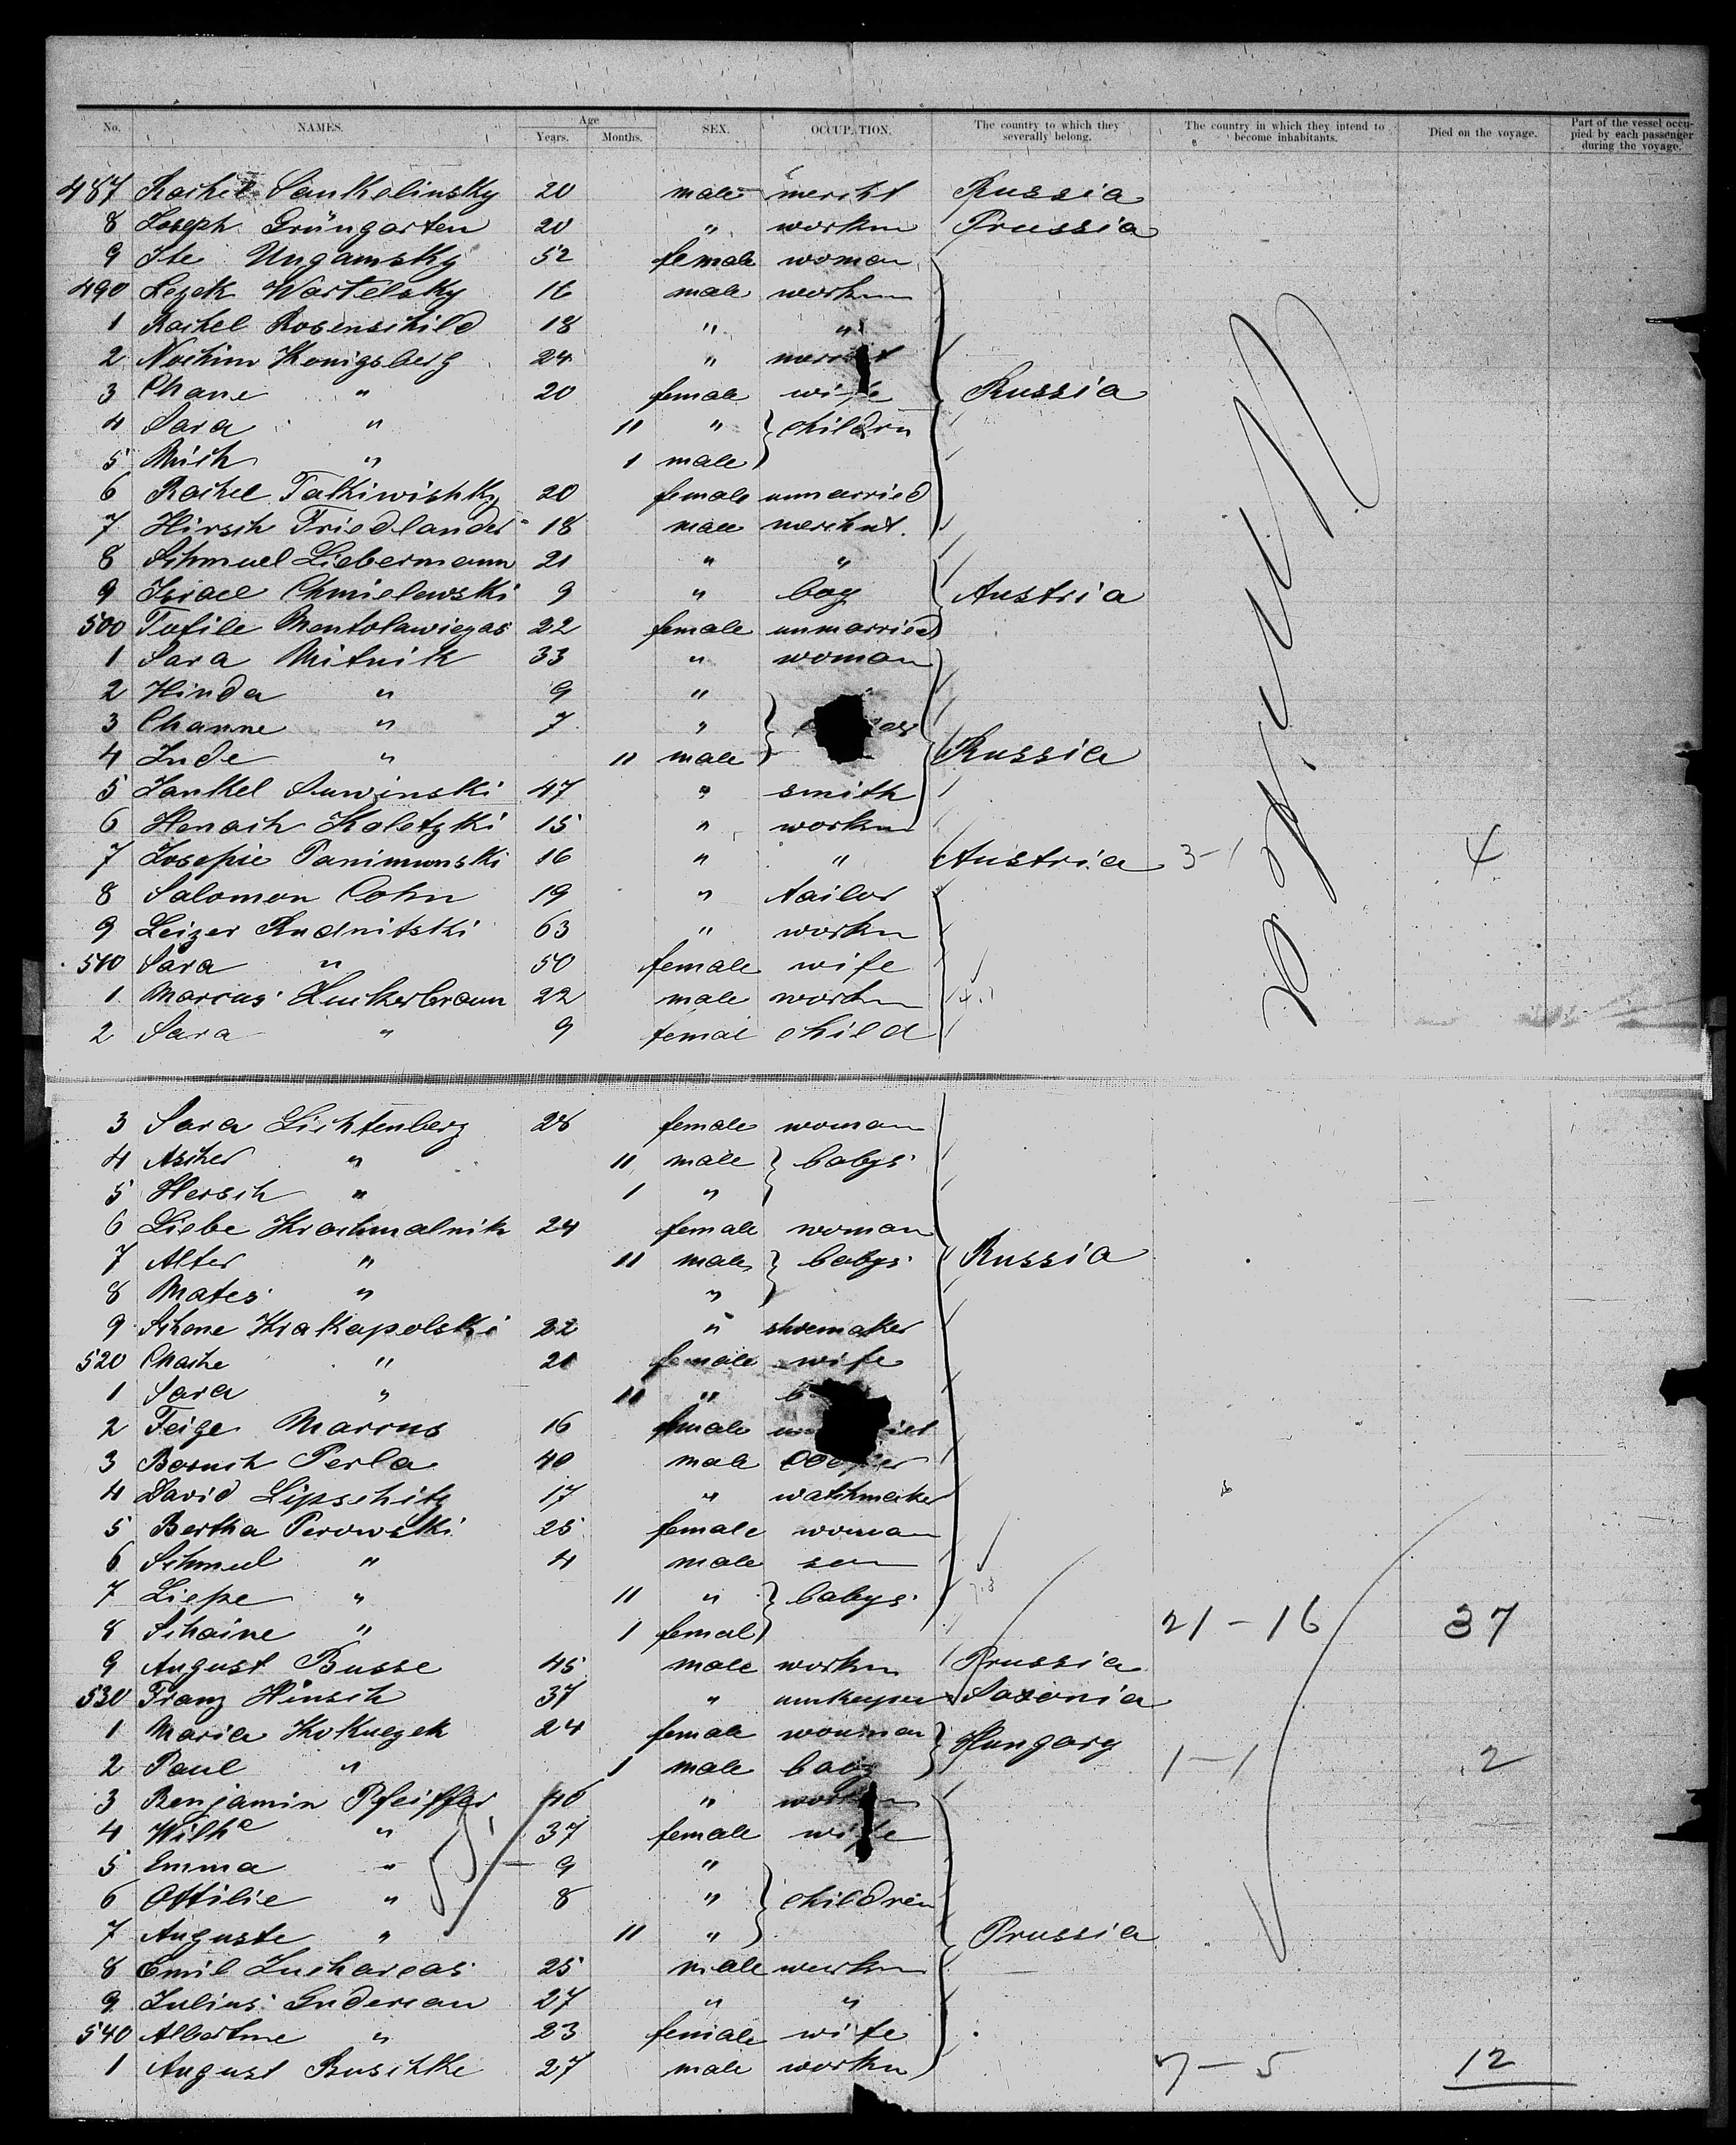 No. NAMES. Age Years. Months. SEX. OCCUPATION. The country to which they severally belong. The country in which they intend to become inhabitants. Died on the voyage. Part of the vessel occupied by each passenger during the voyage.
487 Rachel Sankalinsky 20 male mercht Russia
8 Joseph Grüngarten 20 " workm Prussia
9 Ite Ungamsky 52 female woman
490 Lezek Wartelsky 16 male workm
1 Rachel Rosenschild 18 " "
2 Nochim Konigsberg 24 "
3 Chane " 20 female wife Russia
4 Sara " 11 " children
5 Mich " 1 male
6 Rachel Talkiwishky 20 female unmarried
7 Hirsch Friedlander 18 male merchnt.
8 Schmuel Liebermann 21 " "
9 Israel Chmielewski 9 " boy Austria
500 Tofile 22 female unmarried
1 Sara Mitnik 33 " woman
2 Hinda " 9 "
3 Channe " 7 "
4 Jude " 11 male Russia
5 Jankel Suwinski 47 " smith
6 Henoch Koletzki 15 " workm
7 Josepie Panimunski 16 " " Austria 3-1 4
8 Salomon Cohn 19 " tailor
9 Leizer Rudnitski 63 " workm
510 Sara " 50 female wife
1 Marcus Zuckerbraun 22 male workm
2 Sara " 9 femal child
3 Sara Lichtenberg 28 female woman
4 Ascher " 11 male babys
5 Hersch " 1 "
6 Liebe Krochmalnik 24 female woman
7 Alter " 11 male babys Russia
8 Mates " "
9 Schone Krakapolski 22 " shoemaker
520 Chashe " 21 female wife
1 Sara " 11 "
2 Feige Marcus 16 female
3 Boruch Perla 40 male
4 David Lipschitz 17 " watchmaker
5 Bertha Perowski 25 female woman
6 Schmul " 4 male son
7 Liepe " 11 " babys
8 Schaine " 1 femal 21-16 37
9 August Busse 45 male workm Prussia
530 Franz Hinsch 37 " Saxonia
1 Maria Kokuczek 24 female wouman Hungary
2 Paul " 1 male baby 1-1 2
3 Benjamin Pfeiffer 40 " workm
4 Wilhe " 37 female wife
5 Emma " 9 "
6 Ottilie " 8 " children
7 Auguste " 11 " Prussia
8 Emil Zuchareas 25 male workm
9 Julius Guderian 27 " "
540 Albertine " 23 female wife
1 August Buschke 27 male workm 7-5 12